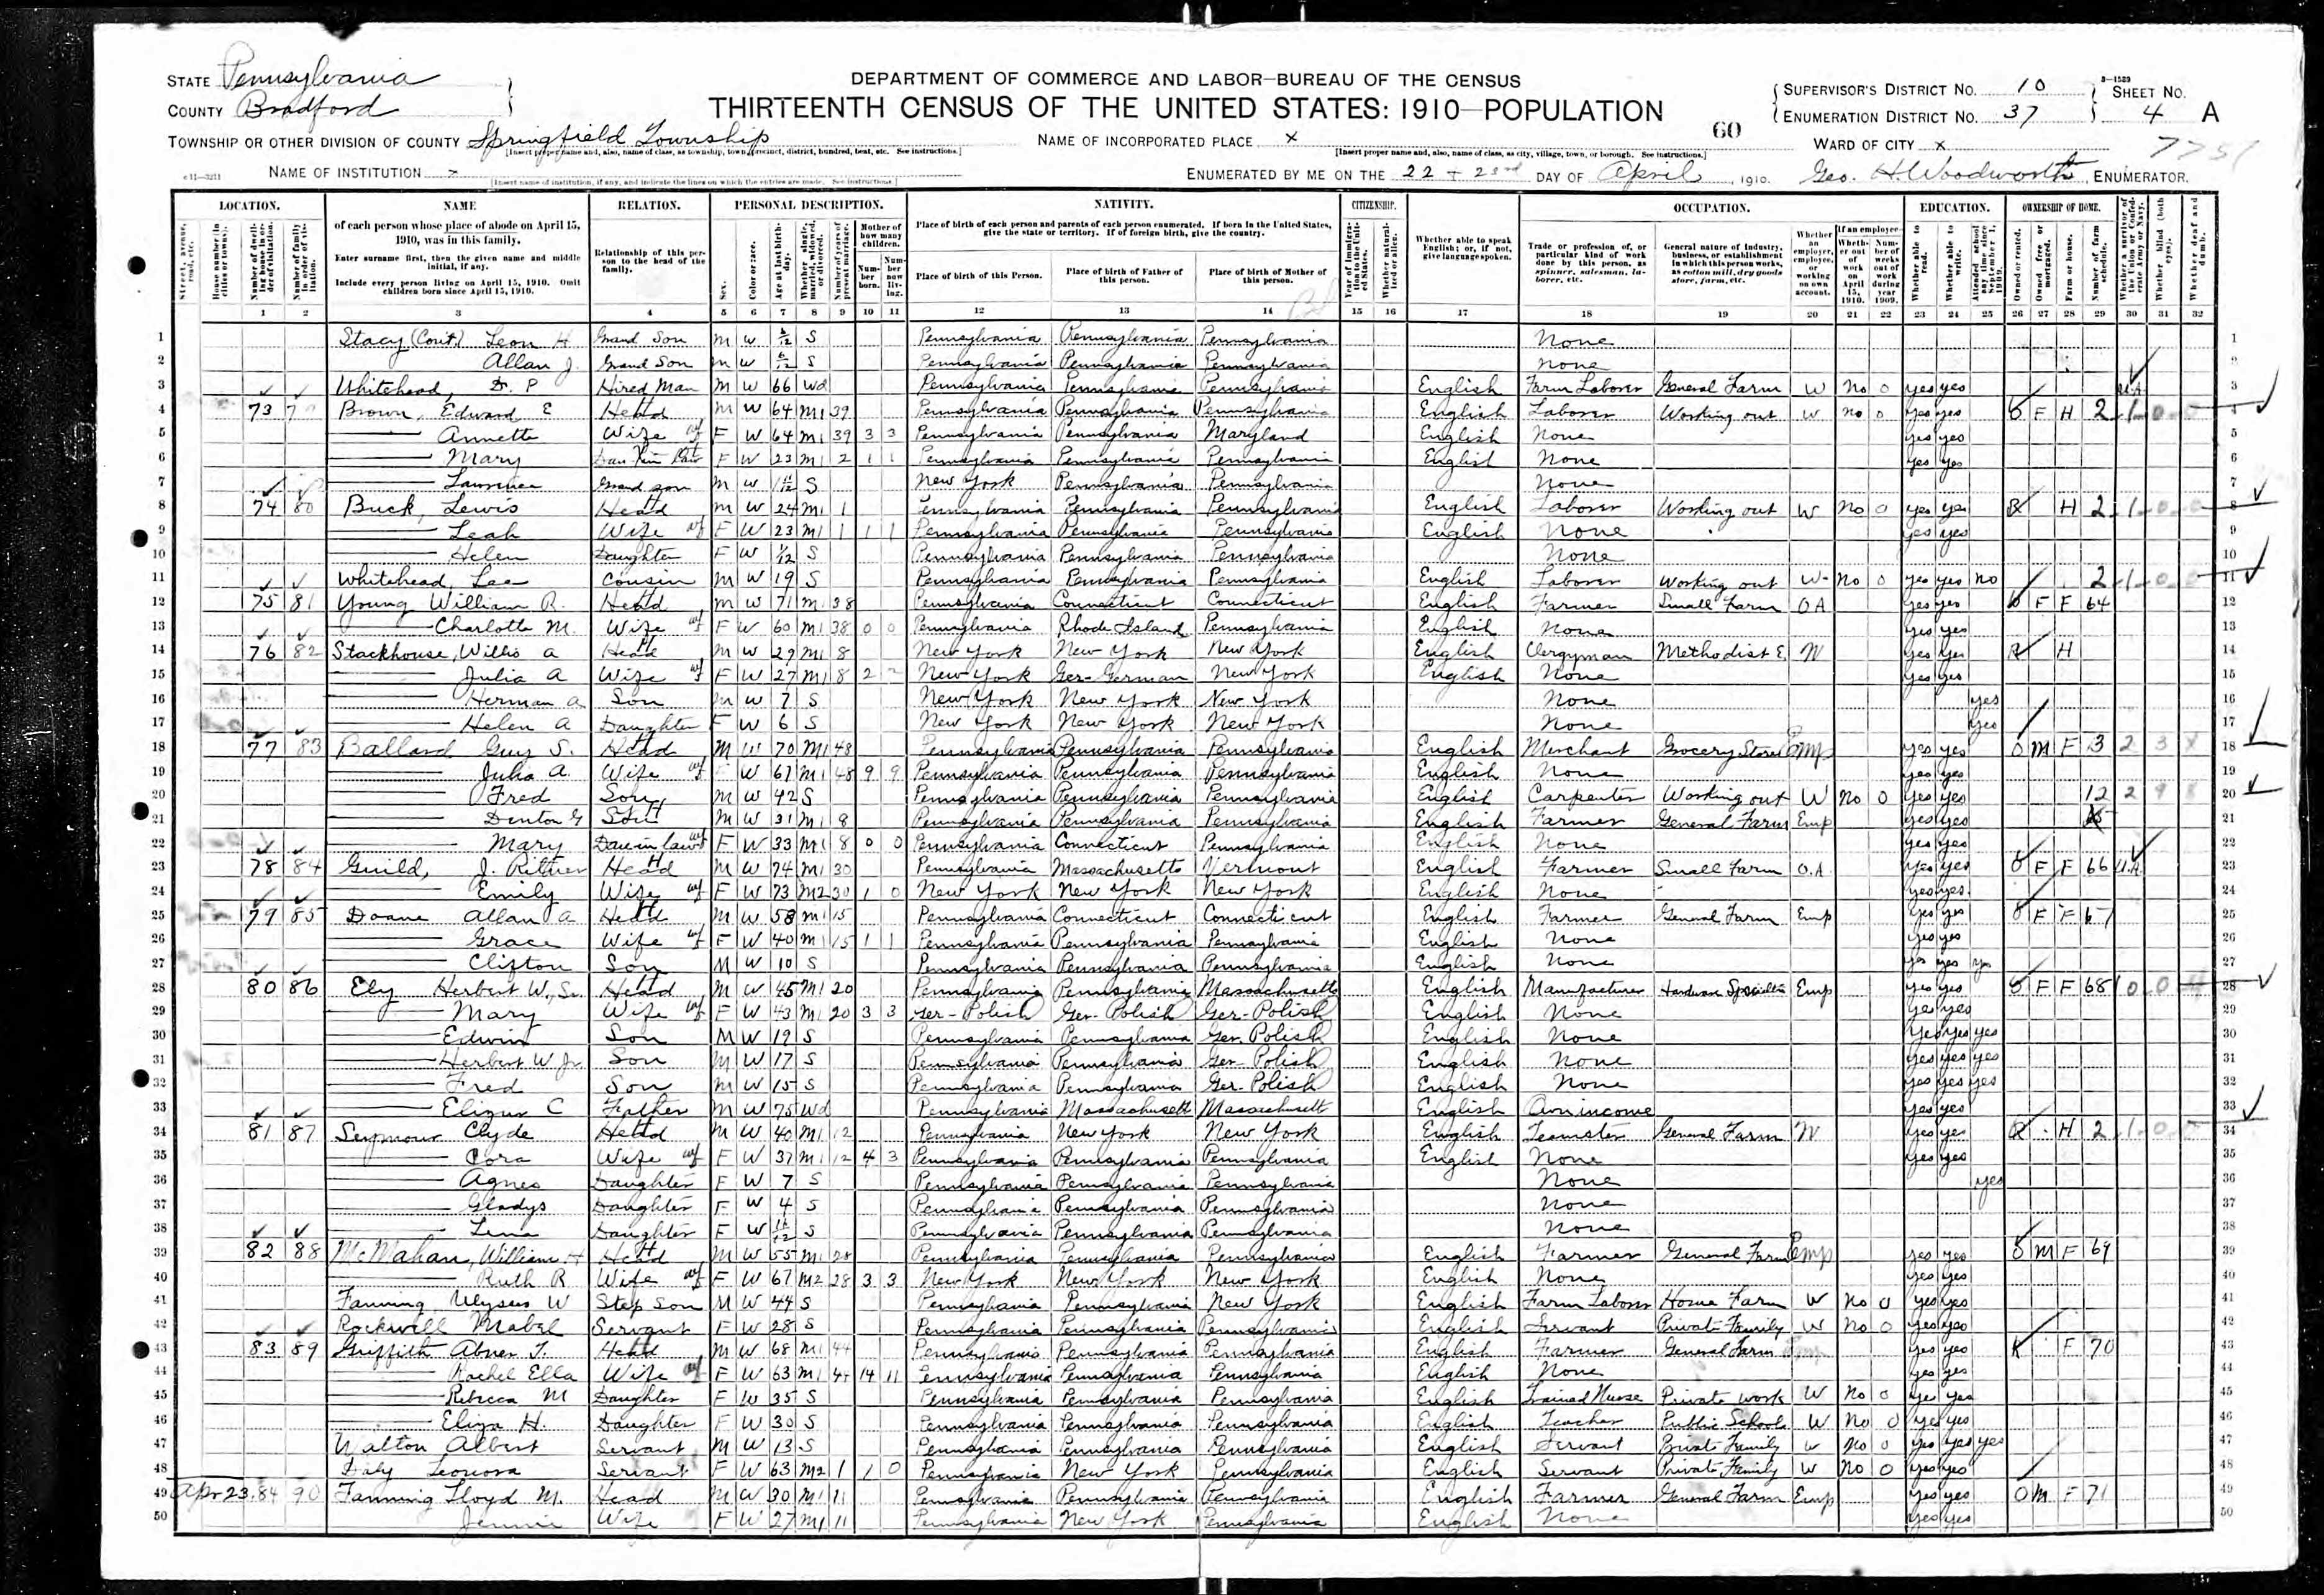 STATE Pennsylvania
COUNTY Bradford
TOWNSHIP OR OTHER DIVISION OF COUNTY Springfield Township
[Insert proper name and, also, name of class, as township, town, precinct, district, hundred, beat, etc. See instructions.]
NAME OF INSTITUTION x
[Insert name of institution, if any, and indicate the lines on which the entries are made. See instructions.]
DEPARTMENT OF COMMERCE AND LABOR—BUREAU OF THE CENSUS
THIRTEENTH CENSUS OF THE UNITED STATES: 1910—POPULATION
NAME OF INCORPORATED PLACE x
[Insert proper name and, also, name of class, as city, village, town, or borough. See instructions.]
ENUMERATED BY ME ON THE 22 + 23rd DAY OF April, 1910. Geo. H Woodworth, ENUMERATOR.
60
SUPERVISOR'S DISTRICT NO. 10
ENUMERATION DISTRICT NO. 37
SHEET NO. 4 A
WARD OF CITY x
7751
LOCATION. NAME RELATION. PERSONAL DESCRIPTION. NATIVITY. CITIZENSHIP. OCCUPATION. EDUCATION. OWNERSHIP OF HOME.
of each person whose place of abode on April 15, 1910, was in this family.
Enter surname first, then the given name and middle initial, if any.
Include every person living on April 15, 1910. Omit children born since April 15, 1910.
Relationship of this person to the head of the family.
Place of birth of each person and parents of each person enumerated. If born in the United States, give the state or territory. If of foreign birth, give the country.
Place of birth of this Person. Place of birth of Father of this person. Place of birth of Mother of this person.
Whether able to speak English; or, if not, give language spoken.
Trade or profession of, or particular kind of work done by this person, as spinner, salesman, laborer, etc.
General nature of industry, business, or establishment in which this person works, as cotton mill, dry goods store, farm, etc.
1 2 3 4 5 6 7 8 9 10 11 12 13 14 15 16 17 18 19 20 21 22 23 24 25 26 27 28 29 30 31 32
1 Stacy (Cont.) Leon H Grand Son M W S Pennsylvania Pennsylvania Pennsylvania None
2 Allan J. Grand Son M W S Pennsylvania Pennsylvania Pennsylvania None
3 Whitehead, D. P Hired Man M W 66 Wd Pennsylvania Pennsylvania Pennsylvania English Farm Laborer General Farm W No 0 yes yes U.A
4 73 Brown, Edward E Head M W 64 M1 39 Pennsylvania Pennsylvania Pennsylvania English Laborer Working out W no 0 yes yes O F H
5 Annette Wife F W 64 M1 39 3 3 Pennsylvania Pennsylvania Maryland English None yes yes
6 Mary F W 23 M1 2 1 1 Pennsylvania Pennsylvania Pennsylvania English None yes yes
7 Lawrence Grand son M W S New York Pennsylvania Pennsylvania None
8 74 80 Buck, Lewis Head M W 24 M1 1 Pennsylvania Pennsylvania Pennsylvania English Laborer Working out W no 0 yes yes R H
9 Leah Wife F W 23 M1 1 1 1 Pennsylvania Pennsylvania Pennsylvania English None yes yes
10 Helen Daughter F W 1/12 S Pennsylvania Pennsylvania Pennsylvania None
11 Whitehead, Lee Cousin M W 19 S Pennsylvania Pennsylvania Pennsylvania English Laborer Working out W No 0 yes yes no
12 75 81 Young William R. Head M W 71 M1 38 Pennsylvania Connecticut Connecticut English Farmer Small Farm OA yes yes O F F 64
13 Charlotte M. Wife F W 60 M1 38 0 0 Pennsylvania Rhode Island Pennsylvania English None yes yes
14 76 82 Stackhouse, Willis A Head M W 29 M1 8 New York New York New York English Clergyman Methodist E. W yes yes R H
15 Julia A Wife F W 27 M1 8 2 2 New York Ger-German New York English None yes yes
16 Herman A Son M W 7 S New York New York New York None yes
17 Helen A Daughter F W 6 S New York New York New York None yes
18 77 83 Ballard Guy S. Head M W 70 M1 48 Pennsylvania Pennsylvania Pennsylvania English Merchant Grocery Store Emp yes yes O M F
19 Julia A. Wife F W 67 M1 48 9 9 Pennsylvania Pennsylvania Pennsylvania English None yes yes
20 Fred Son M W 42 S Pennsylvania Pennsylvania Pennsylvania English Carpenter Working out W no 0 yes yes
21 Denton G Son M W 31 M1 8 Pennsylvania Pennsylvania Pennsylvania English Farmer General Farm Emp yes yes
22 Mary Dau in law F W 33 M1 8 0 0 Pennsylvania Connecticut Pennsylvania English None yes yes
23 78 84 Guild, J. Ritner Head M W 74 M1 30 Pennsylvania Massachusetts Vermont English Farmer Small Farm O.A. yes yes O F F 66 U.A.
24 Emily Wife F W 73 M2 30 1 0 New York New York New York English None yes yes
25 79 85 Doane Allan A Head M W 58 M1 15 Pennsylvania Connecticut Connecticut English Farmer General Farm Emp yes yes O F F 67
26 Grace Wife F W 40 M1 15 1 1 Pennsylvania Pennsylvania Pennsylvania English None yes yes
27 Clifton Son M W 10 S Pennsylvania Pennsylvania Pennsylvania English None yes yes yes
28 80 86 Ely Herbert W, Sr. Head M W 45 M1 20 Pennsylvania Pennsylvania Massachusetts English Manufacturer Hardware Specialties Emp yes yes O F F 68
29 Mary Wife F W 43 M1 20 3 3 Ger-Polish Ger-Polish Ger-Polish English None yes yes
30 Edwin Son M W 19 S Pennsylvania Pennsylvania Ger. Polish English None yes yes yes
31 Herbert W Jr. Son M W 17 S Pennsylvania Pennsylvania Ger-Polish English None yes yes yes
32 Fred Son M W 15 S Pennsylvania Pennsylvania Ger-Polish English None yes yes yes
33 Elizur C Father M W 75 Wd Pennsylvania Massachusett Massachusett English Own income yes yes
34 81 87 Seymour Clyde Head M W 40 M1 12 Pennsylvania New York New York English Teamster General Farm W yes yes R H
35 Cora Wife F W 37 M1 12 4 3 Pennsylvania Pennsylvania Pennsylvania English None yes yes
36 Agnes Daughter F W 7 S Pennsylvania Pennsylvania Pennsylvania None yes
37 Gladys Daughter F W 4 S Pennsylvania Pennsylvania Pennsylvania None
38 Lena Daughter F W 11/12 S Pennsylvania Pennsylvania Pennsylvania None
39 82 88 McMahan, William H Head M W 55 M1 28 Pennsylvania Pennsylvania Pennsylvania English Farmer General Farm Emp yes yes O M F 69
40 Ruth R Wife F W 67 M2 28 3 3 New York New York New York English None yes yes
41 Fanning Ulysses W Step Son M W 44 S Pennsylvania Pennsylvania New York English Farm Laborer Home Farm W No 0 yes yes
42 Rockwell Mabel Servant F W 28 S Pennsylvania Pennsylvania Pennsylvania English Servant Private Family W No 0 yes yes
43 83 89 Griffith Abner T. Head M W 68 M1 44 Pennsylvania Pennsylvania Pennsylvania English Farmer General Farm yes yes R F 70
44 Rachel Ella Wife F W 63 M1 44 14 11 Pennsylvania Pennsylvania Pennsylvania English None yes yes
45 Rebecca M Daughter F W 35 S Pennsylvania Pennsylvania Pennsylvania English Trained Nurse Private work W No 0 yes yes
46 Eliza H. Daughter F W 30 S Pennsylvania Pennsylvania Pennsylvania English Teacher Public Schools W No 0 yes yes
47 Walton Albert Servant M W 13 S Pennsylvania Pennsylvania Pennsylvania English Servant Private Family W No 0 yes yes yes
48 Daly Leonora Servant F W 63 M2 1 1 0 Pennsylvania New York Pennsylvania English Servant Private Family W No 0 yes yes
49 Apr 23. 84 90 Fanning Lloyd M. Head M W 30 M1 11 Pennsylvania Pennsylvania Pennsylvania English Farmer General Farm Emp yes yes O M F 71
50 Jennie Wife F W 27 M1 11 Pennsylvania New York Pennsylvania English None yes yes